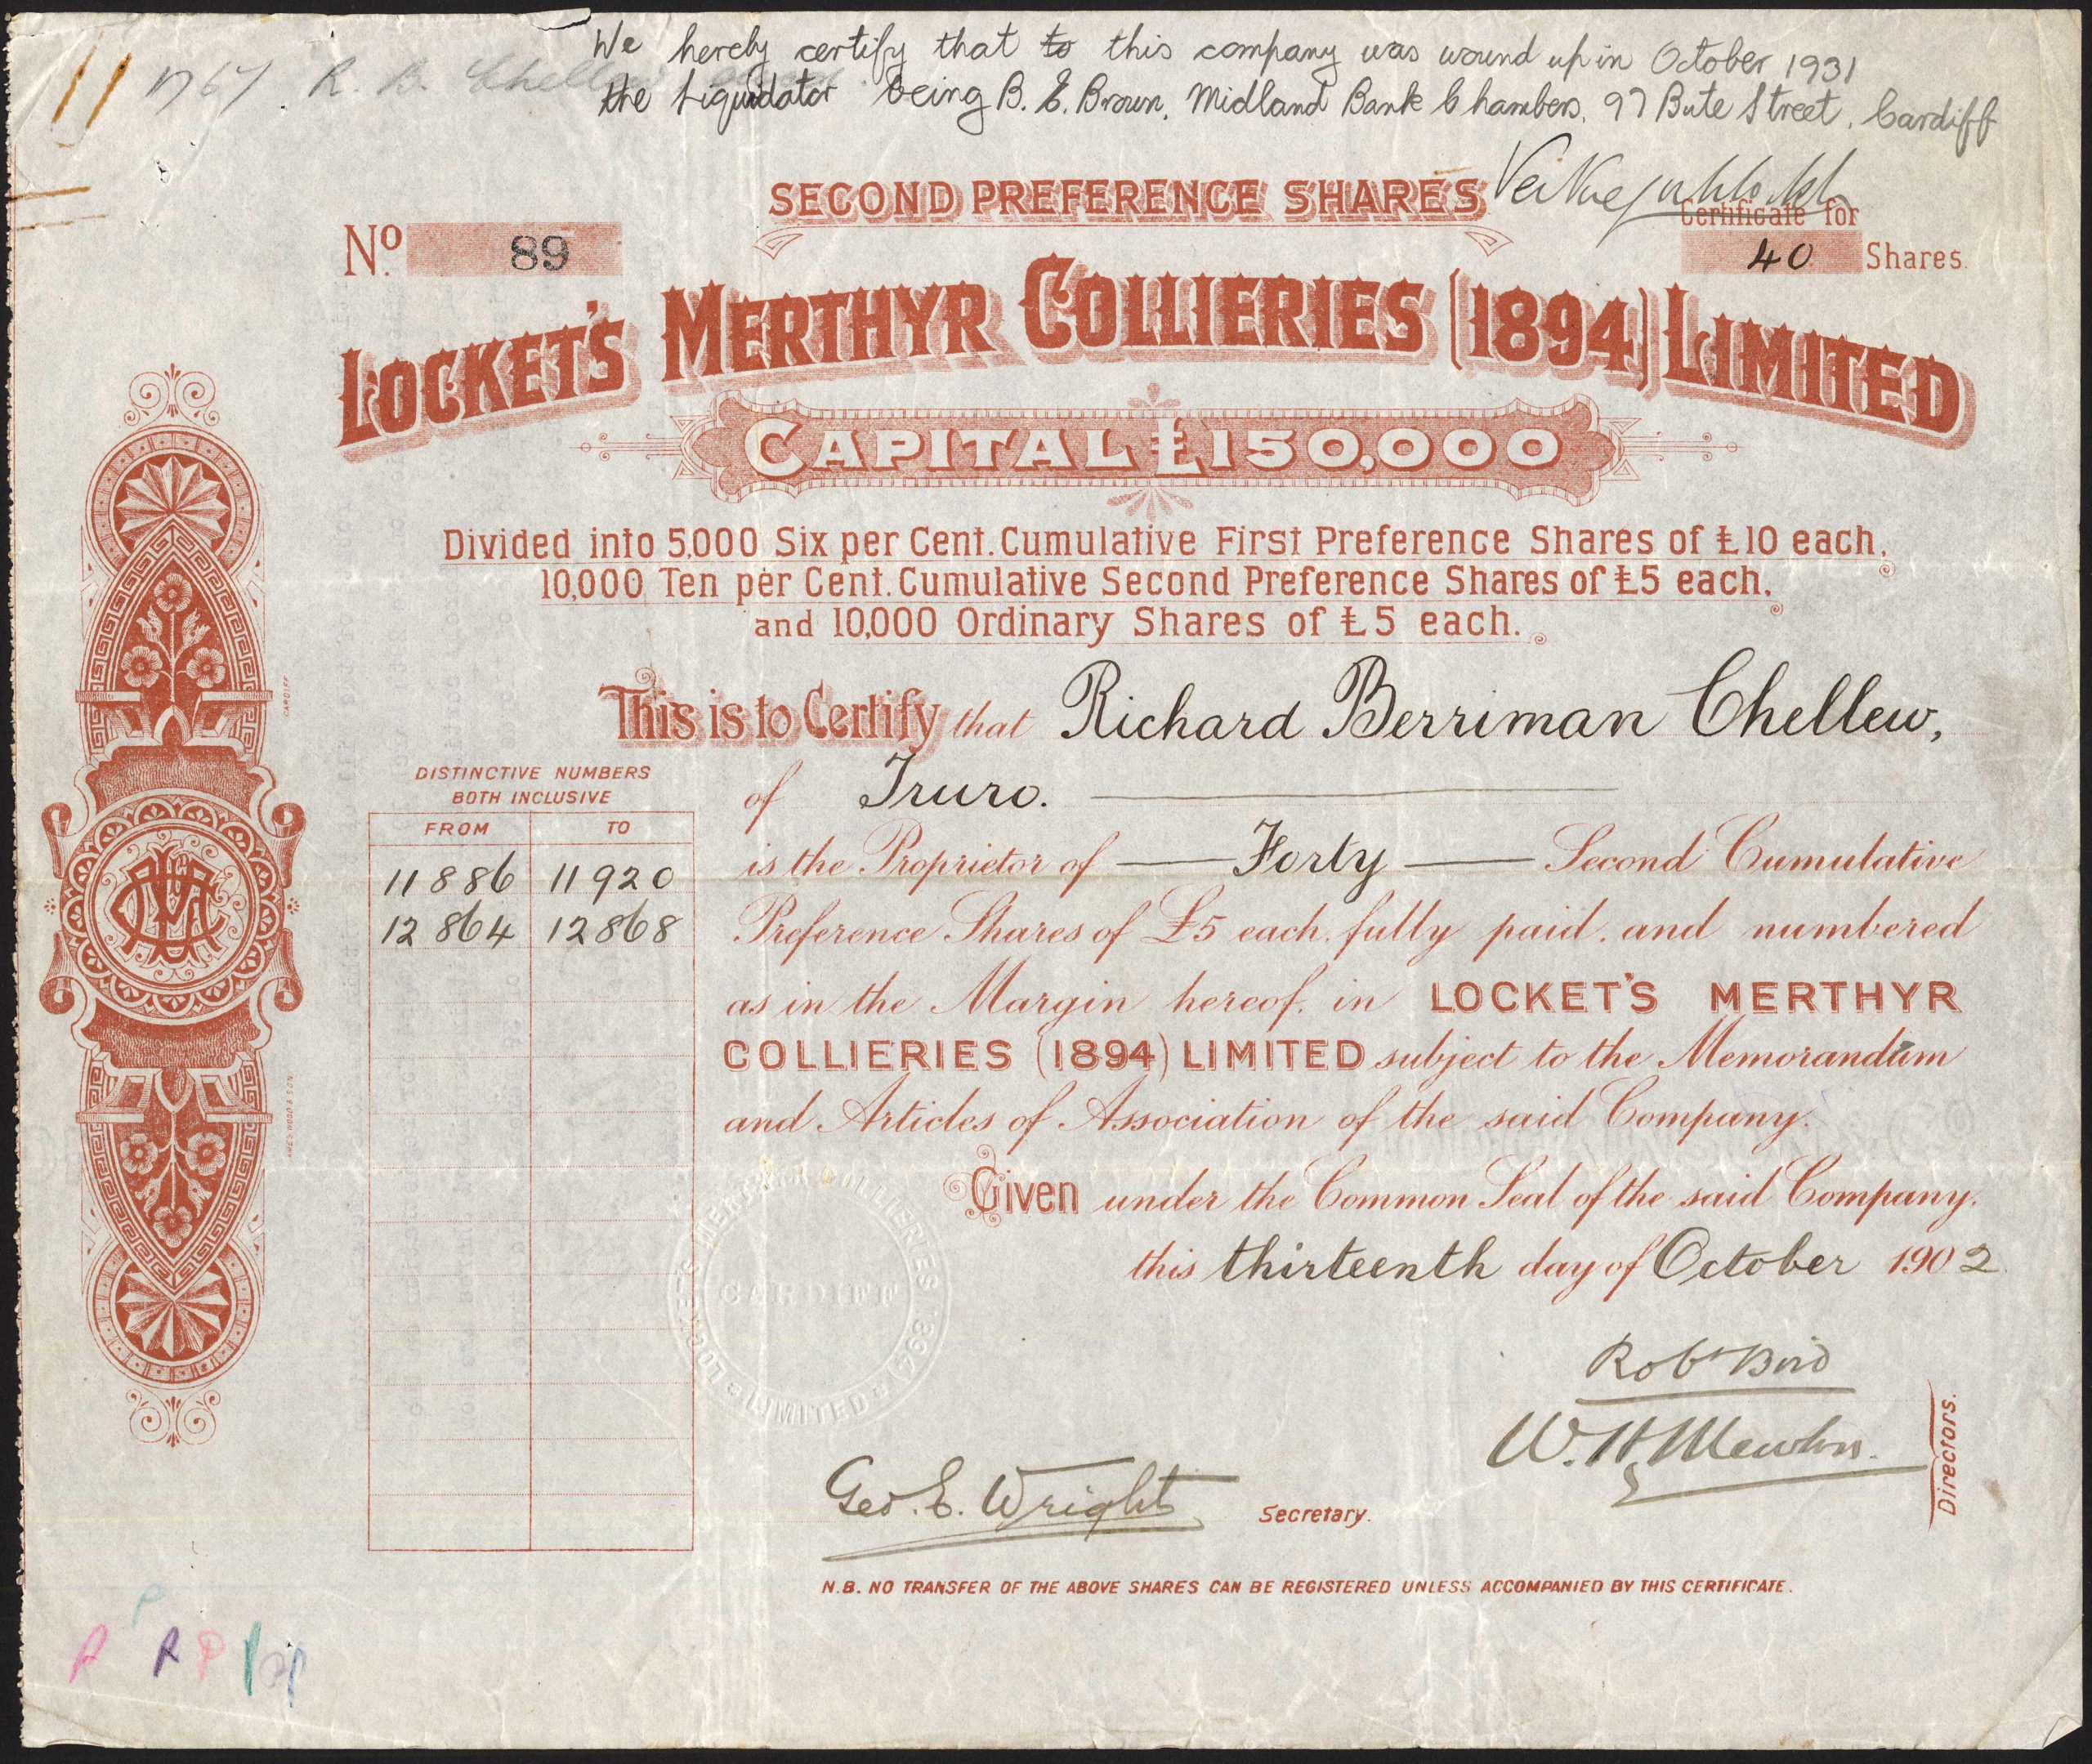 We hereby certify that to this company was wound up in October 1931
the Liquidator being B. E. Brown, Midland Bank Chambers, 97 Bute Street, Cardiff
R. B. Chellew
SECOND PREFERENCE SHARES
Certificate for
No. 89
40 Shares.
LOCKET'S MERTHYR COLLIERIES (1894) LIMITED
CAPITAL £150,000
Divided into 5,000 Six per Cent. Cumulative First Preference Shares of £10 each,
10,000 Ten per Cent. Cumulative Second Preference Shares of £5 each,
and 10,000 Ordinary Shares of £5 each.
This is to Certify that Richard Berriman Chellew,
of Truro.
DISTINCTIVE NUMBERS
BOTH INCLUSIVE
FROM TO
11886 11920
12864 12868
is the Proprietor of Forty Second Cumulative
Preference Shares of £5 each, fully paid, and numbered
as in the Margin hereof, in LOCKET'S MERTHYR
COLLIERIES (1894) LIMITED subject to the Memorandum
and Articles of Association of the said Company.
Given under the Common Seal of the said Company,
this thirteenth day of October 1902
LOCKET'S MERTHYR COLLIERIES 1894 LIMITED
CARDIFF
Robt Bird
W. H. Mewton.
Directors.
Geo. E. Wright
Secretary.
N.B. NO TRANSFER OF THE ABOVE SHARES CAN BE REGISTERED UNLESS ACCOMPANIED BY THIS CERTIFICATE.
CARDIFF